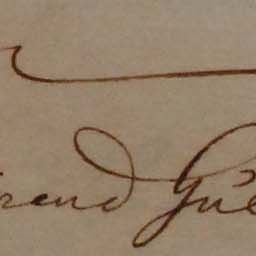 rend Gué